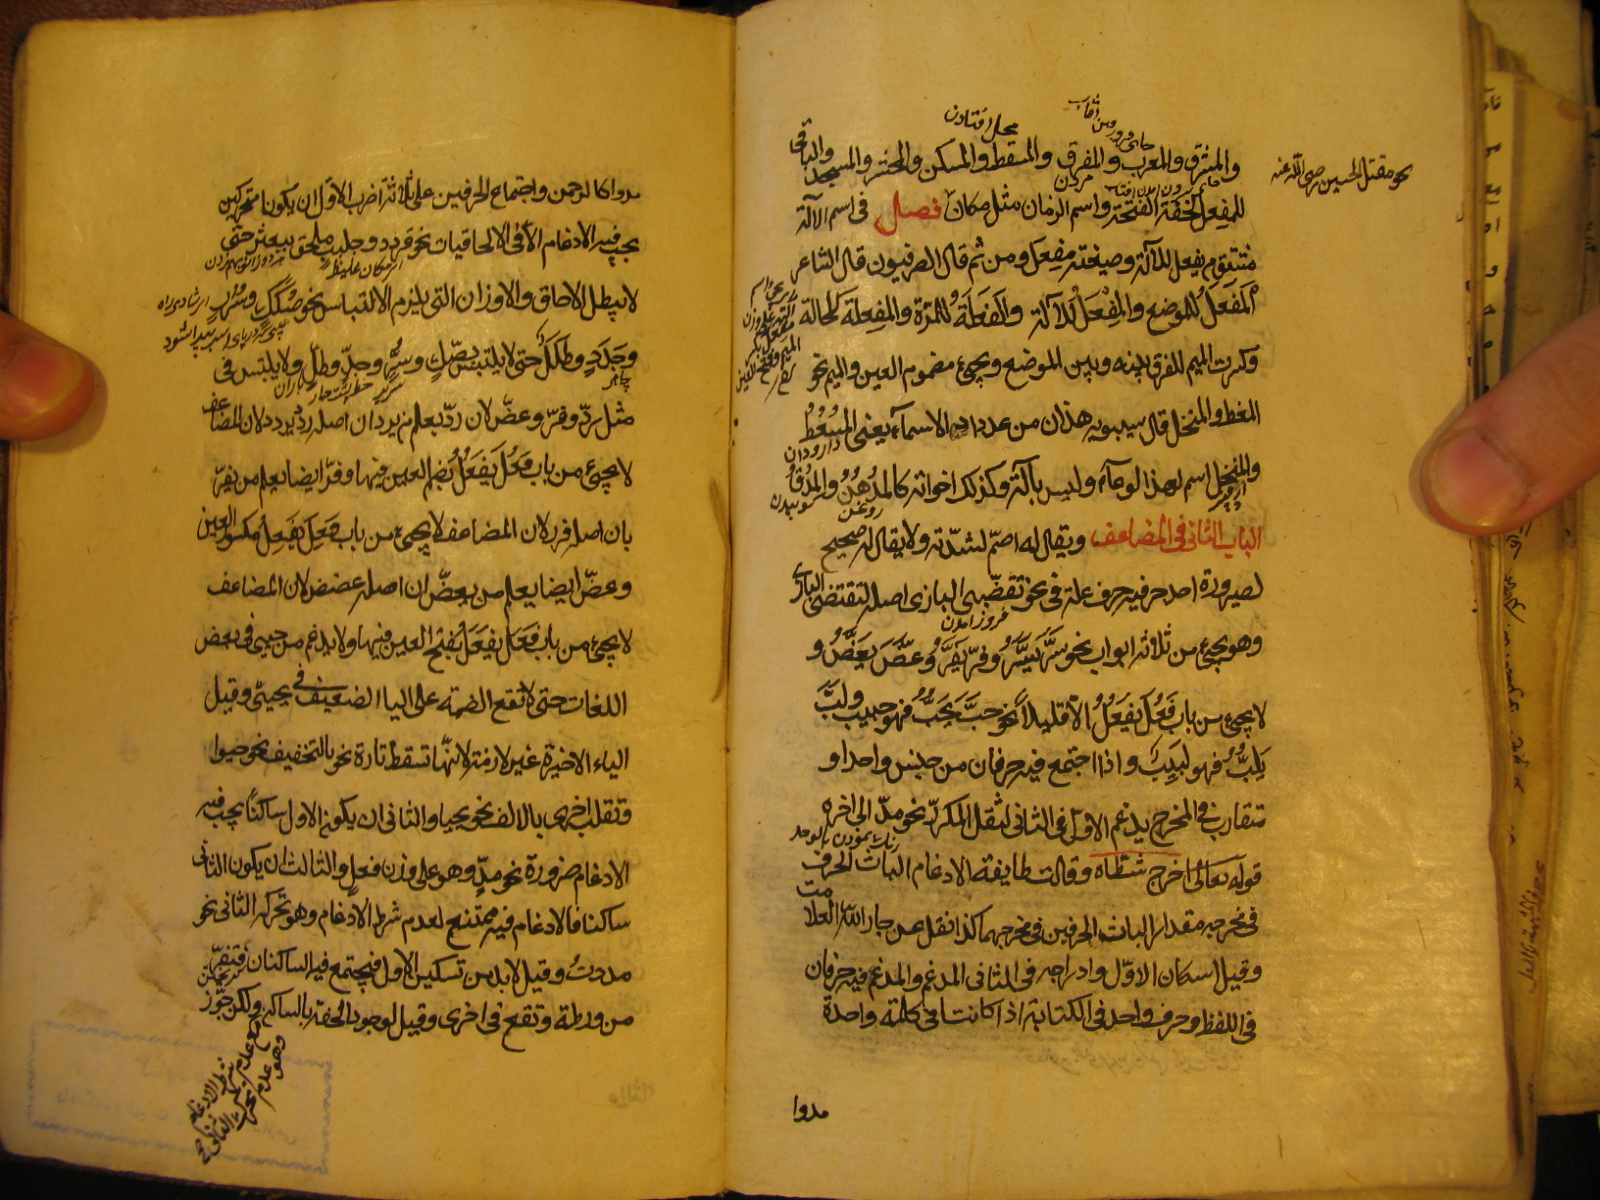 والمشرق والمغرب والمفرق والمسقط والمسكن والمحشر والمسجد والباقى
للمفعل لخفة الفتحة واسم الزمان مثل مكان فصل فى اسم الآلة
مشتق من يفعل للآلة وصيغته مفعل ومن ثم قال الصرفيون قال الشاعر
المَفعَل للموضع والمِفعَل للآلة والفَعلة للمرّة والفِعلة للحالة
وكسرت الميم للفرق بينه وبين الموضع ويجىء مضموم العين والميم نحو
المغط والمنخل قال سيبويه هذان من عداد الاسماء يعنى المُسْعُط
والمنخل اسم لهذا الوعاء وليس بآلة وكذلك اخواته كالمُدهُن والمُدُقّ
الباب الثانى فى المضاعف ويقال له اصمّ لشدّته ولا يقال له صحيح
لصيرورة احد حرفيه حرف علة فى نحو تقضّى البازى اصله تقتضض البازى
وهو يجىء من ثلاثة ابواب نحو سَرَّ يَسُرُّ وفرّ يَفِرُّ وعَضَّ يَعَضُّ و
لا يجىء من باب فَعُلَ يَفعُلُ الاّ قليلاً نحو حبَّ يَحُبُّ فهو حبيب ولَبَّ
يَلُبُّ فهو لبيب واذا اجتمع فيه حرفان من جنس واحد او
متقارب فى المخرج يدغم الاوّل فى الثانى لثقل المكرّر نحو مدّ الى اخره
قوله تعالى اخرج شطأه وقالت طايفة الادغام الباث الحرف
فى مخرجه مقدار الباث الحرفين فى مخرجهما كذا نقل عن جار الله العلامت
وقيل اسكان الاوّل وادراجه فى الثانى المدغم والمدغم فيه حرفان
فى اللفظ وحرف واحد فى الكتابة اذا كانتا فى كلمة واحدة
مدوا
نحو مقتل الحسين رضى الله عنه
محل افتادن
مردن
روغن
مدوا كالرحمن واجتماع الحرفين على ثلاثة اضرب الاوّل ان يكونا متحركين
يجب فيه الادغام الاّ فى الالحاقيات نحو قردد وجلبب ملحق ببعثر حتى
لا يبطل الالحاق والاوزان التى يلزم الالتباس نحو صُكُك وسُرُر
وجَدَدٍ وطَلَلٍ حتى لا يلتبس بصكٍّ وسُرٍّ وجدٍّ وطلٍّ ولا يلتبس فى
مثل ردّ وفرّ وعضّ لان ردّ يعلم من يرد ان اصله ردد يردد لان المضاعف
لا يجىء من باب فَعُلَ يَفعُلُ بضم العين فيهما وفرّ ايضا يعلم من يفرّ
بان اصله فرر لان المضاعف لا يجىء من باب فَعِلَ يَفعِلُ مكسور العين
وعضّ ايضا يعلم من يعضّ ان اصله عضض لان المضاعف
لا يجىء من باب فَعَلَ يفعَلُ بفتح العين فيهما ولا يدغم من حيى فى بعض
اللغات حتى لا تقع الضمة على اليا الضعيف فى يحيىّ وقيل
الياء الاخيرة غير لازمة لانّها تسقط تارة نحو بالتخفيف نحو حيوا
وتقلب اخرى بالالف نحو يحيا والثانى ان يكون الاول ساكناً يجب فيه
الادغام ضرورة نحو مدٍّ وهو على وزن فعلٍ والثالث ان يكون الثانى
ساكنا فالادغام فيه ممتنع لعدم شرط الادغام وهو تحرك الثانى نحو
مددتُ وقيل لا بد من تسكين الاول فيجتمع فيه الساكنان فتفرّ
من ورطة وتقع فى اخرى وقيل لوجود الخفة بالساكن ولكن جوّز